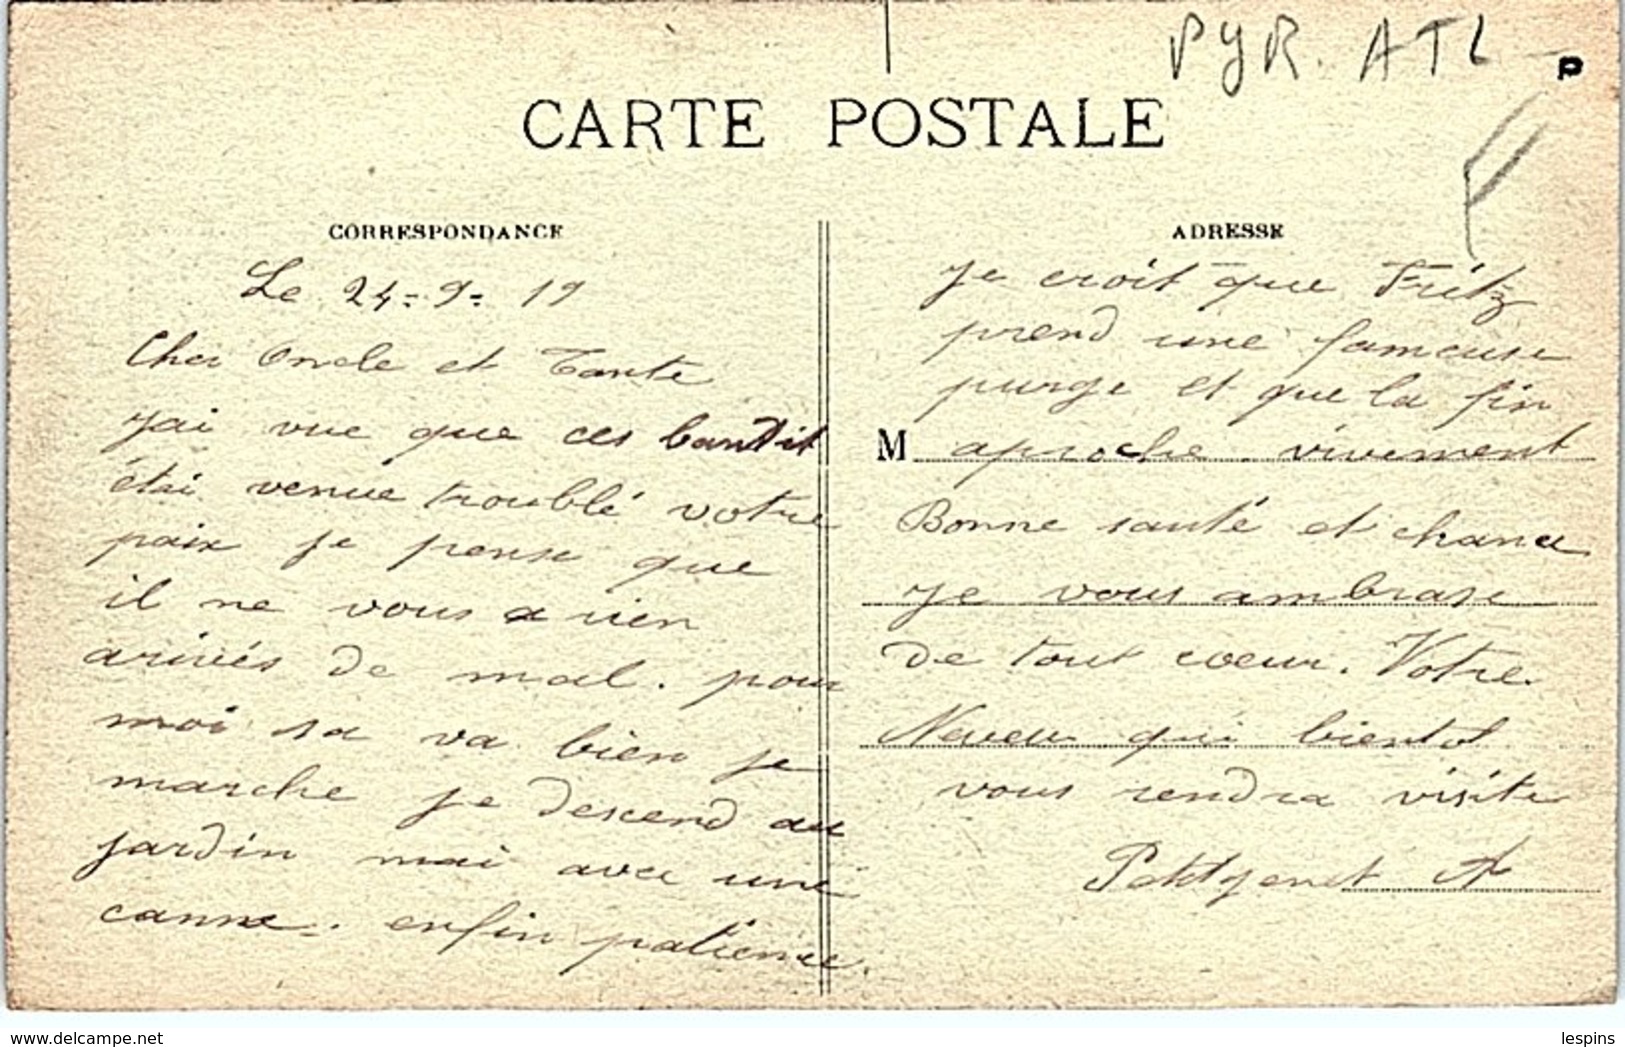 PYR. ATL
P
CARTE POSTALE
CORRESPONDANCE
Le 24-9-19
Cher Oncle et Tante
j'ai vue que ces bandit
étai venue troublé votre
paix je pense que
il ne vous a rien
arivés de mal. pour
moi sa va bien je
marche je descend au
jardin mai avec une
canne. enfin patience.
ADRESSE
je croit que Fritz
prend une fameuse
purge et que la fin
M aproche. vivement
Bonne santé et chance
je vous ambrase
de tout coeur. Votre
Neveu qui bientot
vous rendra visite
Petitjenet A
delcampe.net
lespins